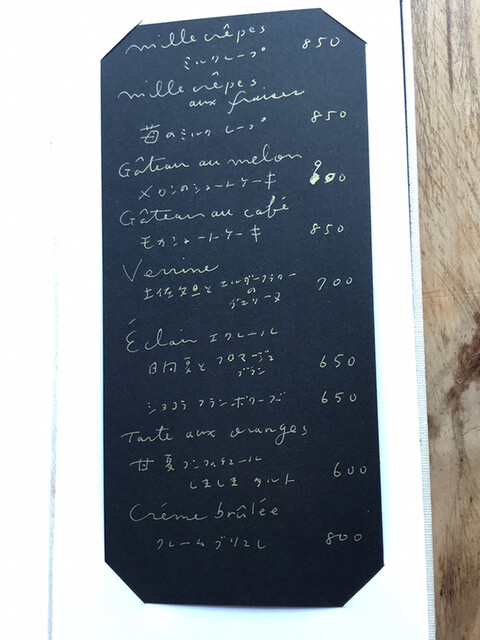 mille crêpes
ミルクレープ 850
mille crêpes
aux fraises
苺のミルクレープ 850
Gâteau au melon
メロンのショートケーキ
Gâteau au café
モカショートケーキ 850
Verrine
土佐文旦とエルダーフラワー
の 700
ヴェリーヌ
Éclair エクレール
日向夏とフロマージュ
ブラン 650
ショコラ フランボワーズ 650
Tarte aux oranges
甘夏
しましまタルト 600
Crème brûlée
クレームブリュレ 800